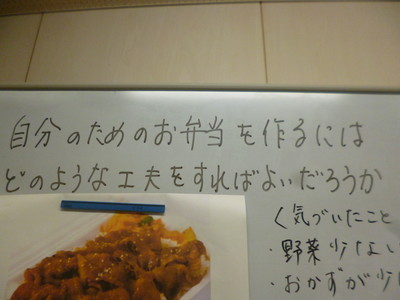 自分のためのお弁当を作るには
どのような工夫をすればよいだろうか
く気づいたこと
・野菜少ない
・おかずが少